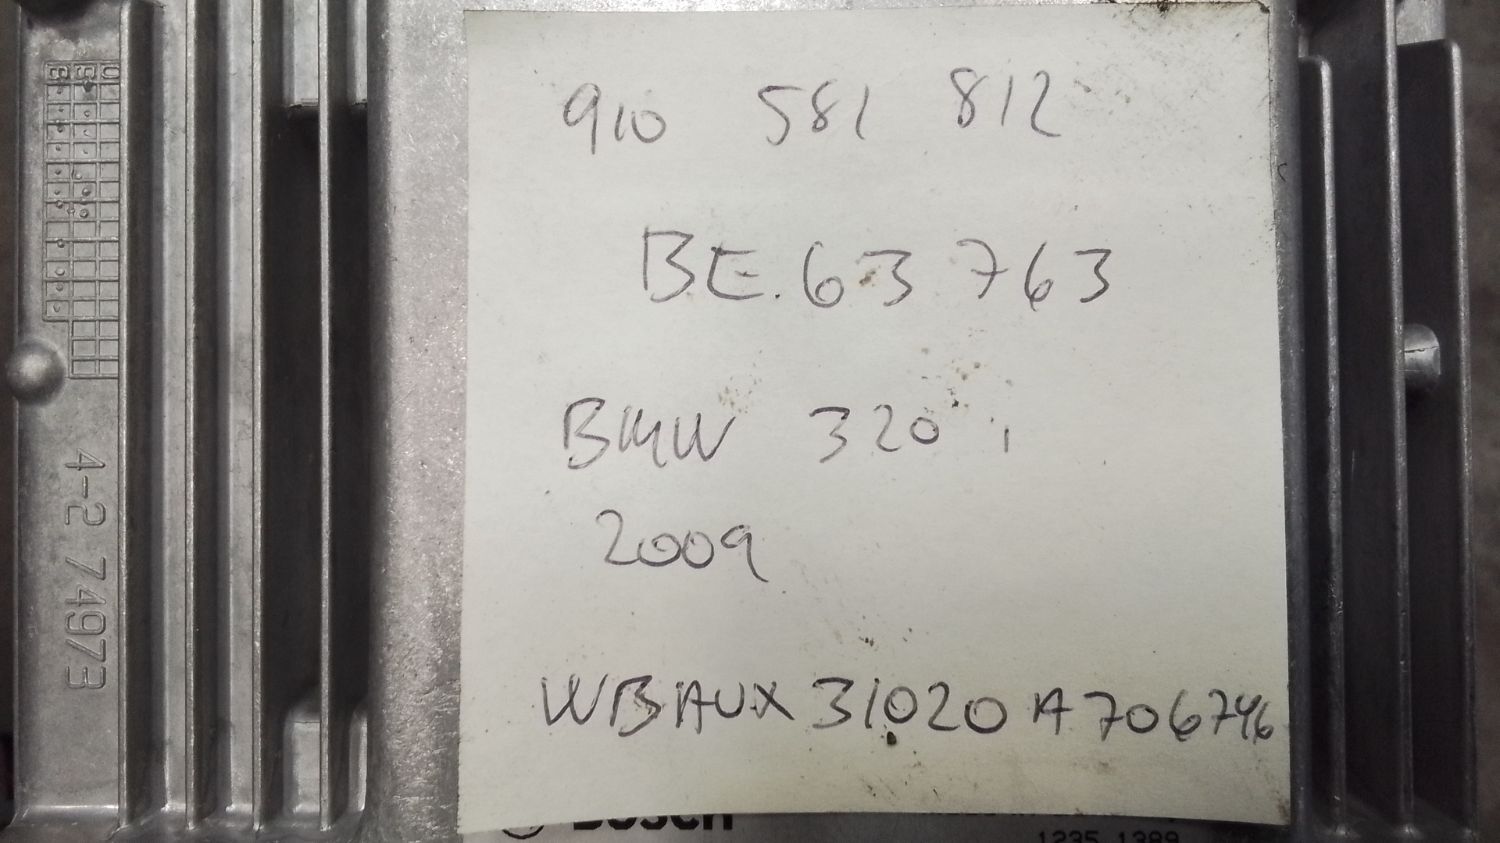 910 581 812
BE.63 763
BMW 320 i
2009
WBAUX31020A706746
4-2 74973